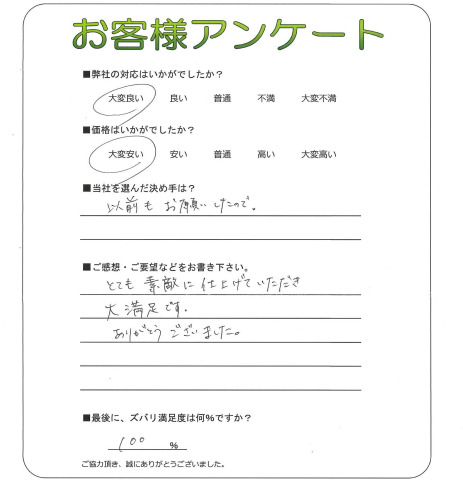 お客様アンケート
■弊社の対応はいかがでしたか？
大変良い 良い 普通 不満 大変不満
■価格はいかがでしたか？
大変安い 安い 普通 高い 大変高い
■当社を選んだ決め手は？
以前も お願いしたので。
■ご感想・ご要望などをお書き下さい。
とても 素敵に 仕上げていただき
大満足です.
ありがとう ございました。
■最後に、ズバリ満足度は何%ですか？
100 %
ご協力頂き、誠にありがとうございました。